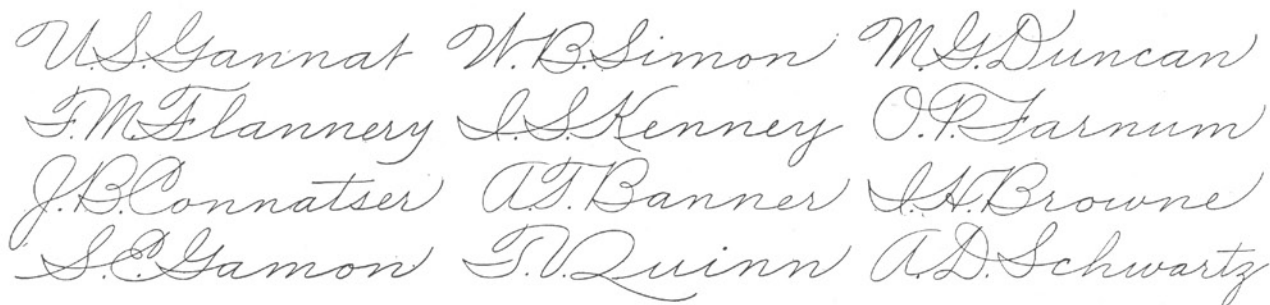 U.S. Gannat W.B. Simon M.G. Duncan
F.M. Flannery I.S. Kenney O.P. Farnum
J.B. Connatser A.T. Banner I.H. Browne
S.E. Gamon T.V. Quinn A.D. Schwartz